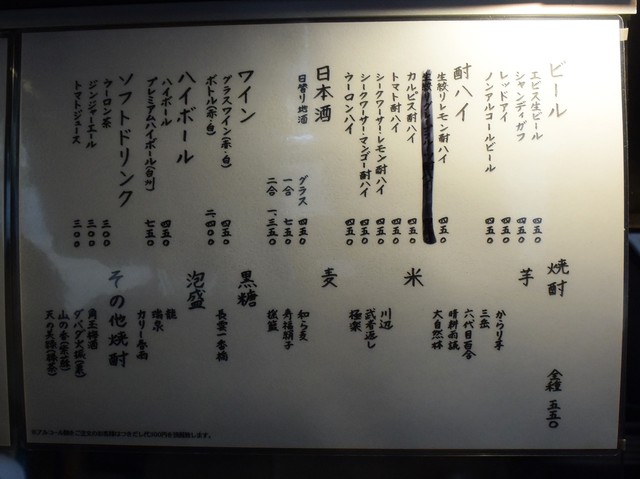 ビール
エビス生ビール 四五〇
シャンディガフ 四五〇
レッドアイ 四五〇
ノンアルコールビール 四五〇
酎ハイ
生絞りレモン酎ハイ 四五〇
カルピス酎ハイ 四五〇
トマト酎ハイ 四五〇
シークワーサーレモン酎ハイ 四五〇
シークワーサーマンゴー酎ハイ 四五〇
ウーロンハイ 四五〇
日本酒
日替り地酒 グラス 四五〇
一合 七五〇
二合 一、三五〇
ワイン
グラスワイン(赤・白) 四五〇
ボトル(赤・白) 二、四〇〇
ハイボール
ハイボール 四五〇
プレミアムハイボール(白州) 七五〇
ソフトドリンク
ウーロン茶 三〇〇
ジンジャーエール 三〇〇
トマトジュース 三〇〇
焼酎 全種 五五〇
芋
からり芋
三岳
六代目百合
晴耕雨読
大自然林
米
川辺
武者返し
極楽
麦
和ら麦
寿福絹子
黒糖
長雲一番橋
泡盛
龍
瑞泉
カリー春雨
その他焼酎
角玉梅酒
ダバダ火振(栗)